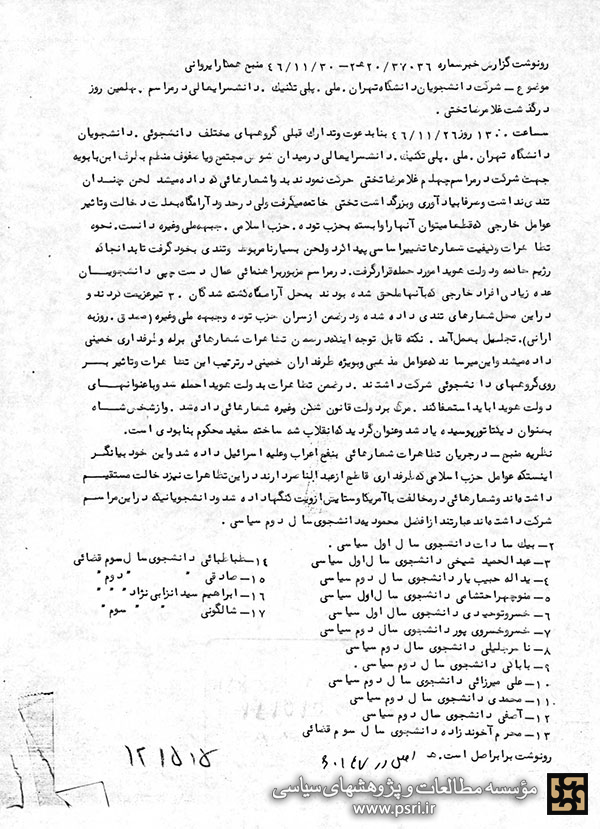 رونوشت گزارش خبر شماره ۲۰/۳۷۰۳۶ هـ ۲ – ۴۶/۱۱/۳۰ منبع همتا را یروانی
موضوع – شرکت دانشجویان دانشگاه تهران . ملی . پلی تکنیک . دانشسرایعالی در مراسم . چهلمین روز
درگذشت غلامرضا تختی .
ساعت ۱۳۰۰ روز ۴۶/۱۱/۲۶ بنا بدعوت و تدارک قبلی گروههای مختلف دانشجوئی . دانشجویان
دانشگاه تهران . ملی . پلی تکنیک . دانشسرایعالی در میدان شوش مجتمع وبا صفوف منظم بطرف ابن بابویه
جهت شرکت در مراسم چهلم غلامرضا تختی حرکت نمودند بدوا شعارهائی که داده میشد لحن چندان
تندی نداشت و صرفا بیادآوری و بزرگداشت تختی خاتمه میگرفت ولی در حدود آرامگاه بعلت دخالت و تاثیر
عوامل خارجی که قطعا میتوان آنها را وابسته بحزب توده . حزب اسلامی . جبهه ملی وغیره دانست . نحوه
تظاهرات و کیفیت شعارها تغییر اساسی پیدا کرد و لحن بسیار نامربوط و تندی بخود گرفت تا بدانجا که
رژیم حاکمه و دولت هویدا مورد حمله قرار گرفت . در مراسم مزبور براهنمائی عمال دست چپی دانشجویان
عده زیادی افراد خارجی که بآنها ملحق شده بودند بمحل آرامگاه کشته شدگان ۳۰ تیر عزیمت کردند و
در این محل شعارهای تندی داده شد و در ضمن از سران حزب توده و جبهه ملی وغیره (مصدق . روزبه
ارانی) . تجلیل بعمل آمد . نکته قابل توجه اینکه در ضمن تظاهرات شعارهائی برله و طرفداری خمینی
داده میشد و این میرساند که عوامل مذهبی و بویژه طرفداران خمینی در ترتیب این تظاهرات و تاثیر بر
روی گروههای دانشجوئی شرکت داشتند . در ضمن تظاهرات بدولت هویدا حمله شد و با عنوانهای
دولت هویدا باید استعفا کند . مرگ بر دولت قانون شکن وغیره شعارهائی داده شد . و از شخص شاه
بعنوان دیکتاتور پوسیده یاد شد و عنوان گردید که انقلاب شه ساخته سفید محکوم بنابودی است .
نظریه منبع – در جریان تظاهرات شعارهائی بنفع اعراب و علیه اسرائیل داده شد و این خود بیانگر
اینستکه عوامل حزب اسلامی که طرفداری قاطع از عبدالناصر دارند در این تظاهرات نیز دخالت مستقیم
داشته اند و شعارهائی در مخالفت با آمریکا و ستایش از ویت کنگها داده شد و دانشجویانیکه در این مراسم
شرکت داشته اند عبارتند از افضل محمودیه دانشجوی سال دوم سیاسی .
۲– بیک سادات دانشجوی سال اول سیاسی .
۳– عبدالحمید شیخی دانشجوی سال اول سیاسی
۴– یداله حبیب یار دانشجوی سال دوم سیاسی
۵– منوچهر احتشامی دانشجوی سال اول سیاسی
۶– خسرو توحیدی دانشجوی سال اول سیاسی
۷– خسرو خسروی پور دانشجوی سال دوم سیاسی
۸– ناصر جلیلی دانشجوی سال دوم سیاسی
۹– بابائی دانشجوی سال دوم سیاسی .
۱۰– علی میرزائی دانشجوی سال دوم سیاسی
۱۱– محمدی دانشجوی سال دوم سیاسی
۱۲– آصفی دانشجوی سال دوم سیاسی
۱۳– محرم آخوندزاده دانشجوی سال سوم قضائی
۱۴– طباطبائی دانشجوی سال سوم قضائی
۱۵– صادقی " " دوم "
۱۶– ابراهیم سیدانزابی نژاد " " "
۱۷– شالگونی " " سوم "
رونوشت برابر اصل است . هـ
اصل در ۳۰۱۴۷
۱۲۱۵۱۵
مؤسسه مطالعات و پژوهشهای سیاسی
www.psri.ir